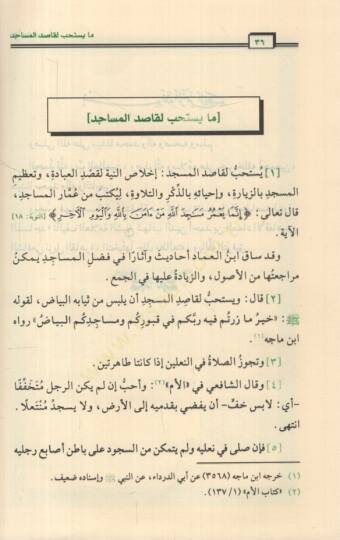 ما يستحب لقاصد المساجد
٣٦
[ما يستحب لقاصد المساجد]
[١] يُستحبُّ لقاصد المسجد: إخلاص النية لقصْدِ العبادةِ، وتعظيم
المسجدِ بالزيارةِ، وإحيائِهِ بالذِّكْرِ والتلاوةِ، ليُكتبَ من عُمَّار المساجدِ،
قال تعالى: ﴿إِنَّمَا يَعْمُرُ مَسَٰجِدَ ٱللَّهِ مَنْ ءَامَنَ بِٱللَّهِ وَٱلْيَوْمِ ٱلْآخِرِ﴾ [التوبة: ١٨]
الآية.
وقد ساق ابنُ العماد أحاديثَ وآثارًا في فضلِ المساجدِ يمكنُ
مراجعتُها من الأصول، والزيادةُ عليها في الجمع.
[٢] قال: ويستحبُّ لقاصِدِ المسجِدِ أن يلبس من ثيابه البياض، لقوله
ﷺ: «خيرُ ما زرتُم فيه ربَّكم في قبورِكُم ومساجدِكُم البياضُ» رواه
ابن ماجه(١).
[٣] وتجوزُ الصلاةُ في النعلين إذا كانتا طاهرتين.
[٤] وقال الشافعي في «الأم»(٢): وأحبُّ إن لم يكن الرجل مُتَخَفِّفًا
-أي: لابس خفٍّ- أن يفضي بقدميه إلى الأرض، ولا يسجدُ مُنْتَعلًا.
انتهى.
[٥] فإن صلى في نعليه ولم يتمكن من السجود على باطن أصابع رجليه
(١) خرجه ابن ماجه (٣٥٦٨) عن أبي الدرداء، عن النبي ﷺ وإسناده ضعيف.
(٢) «كتاب الأم» (١/ ١٣٧).